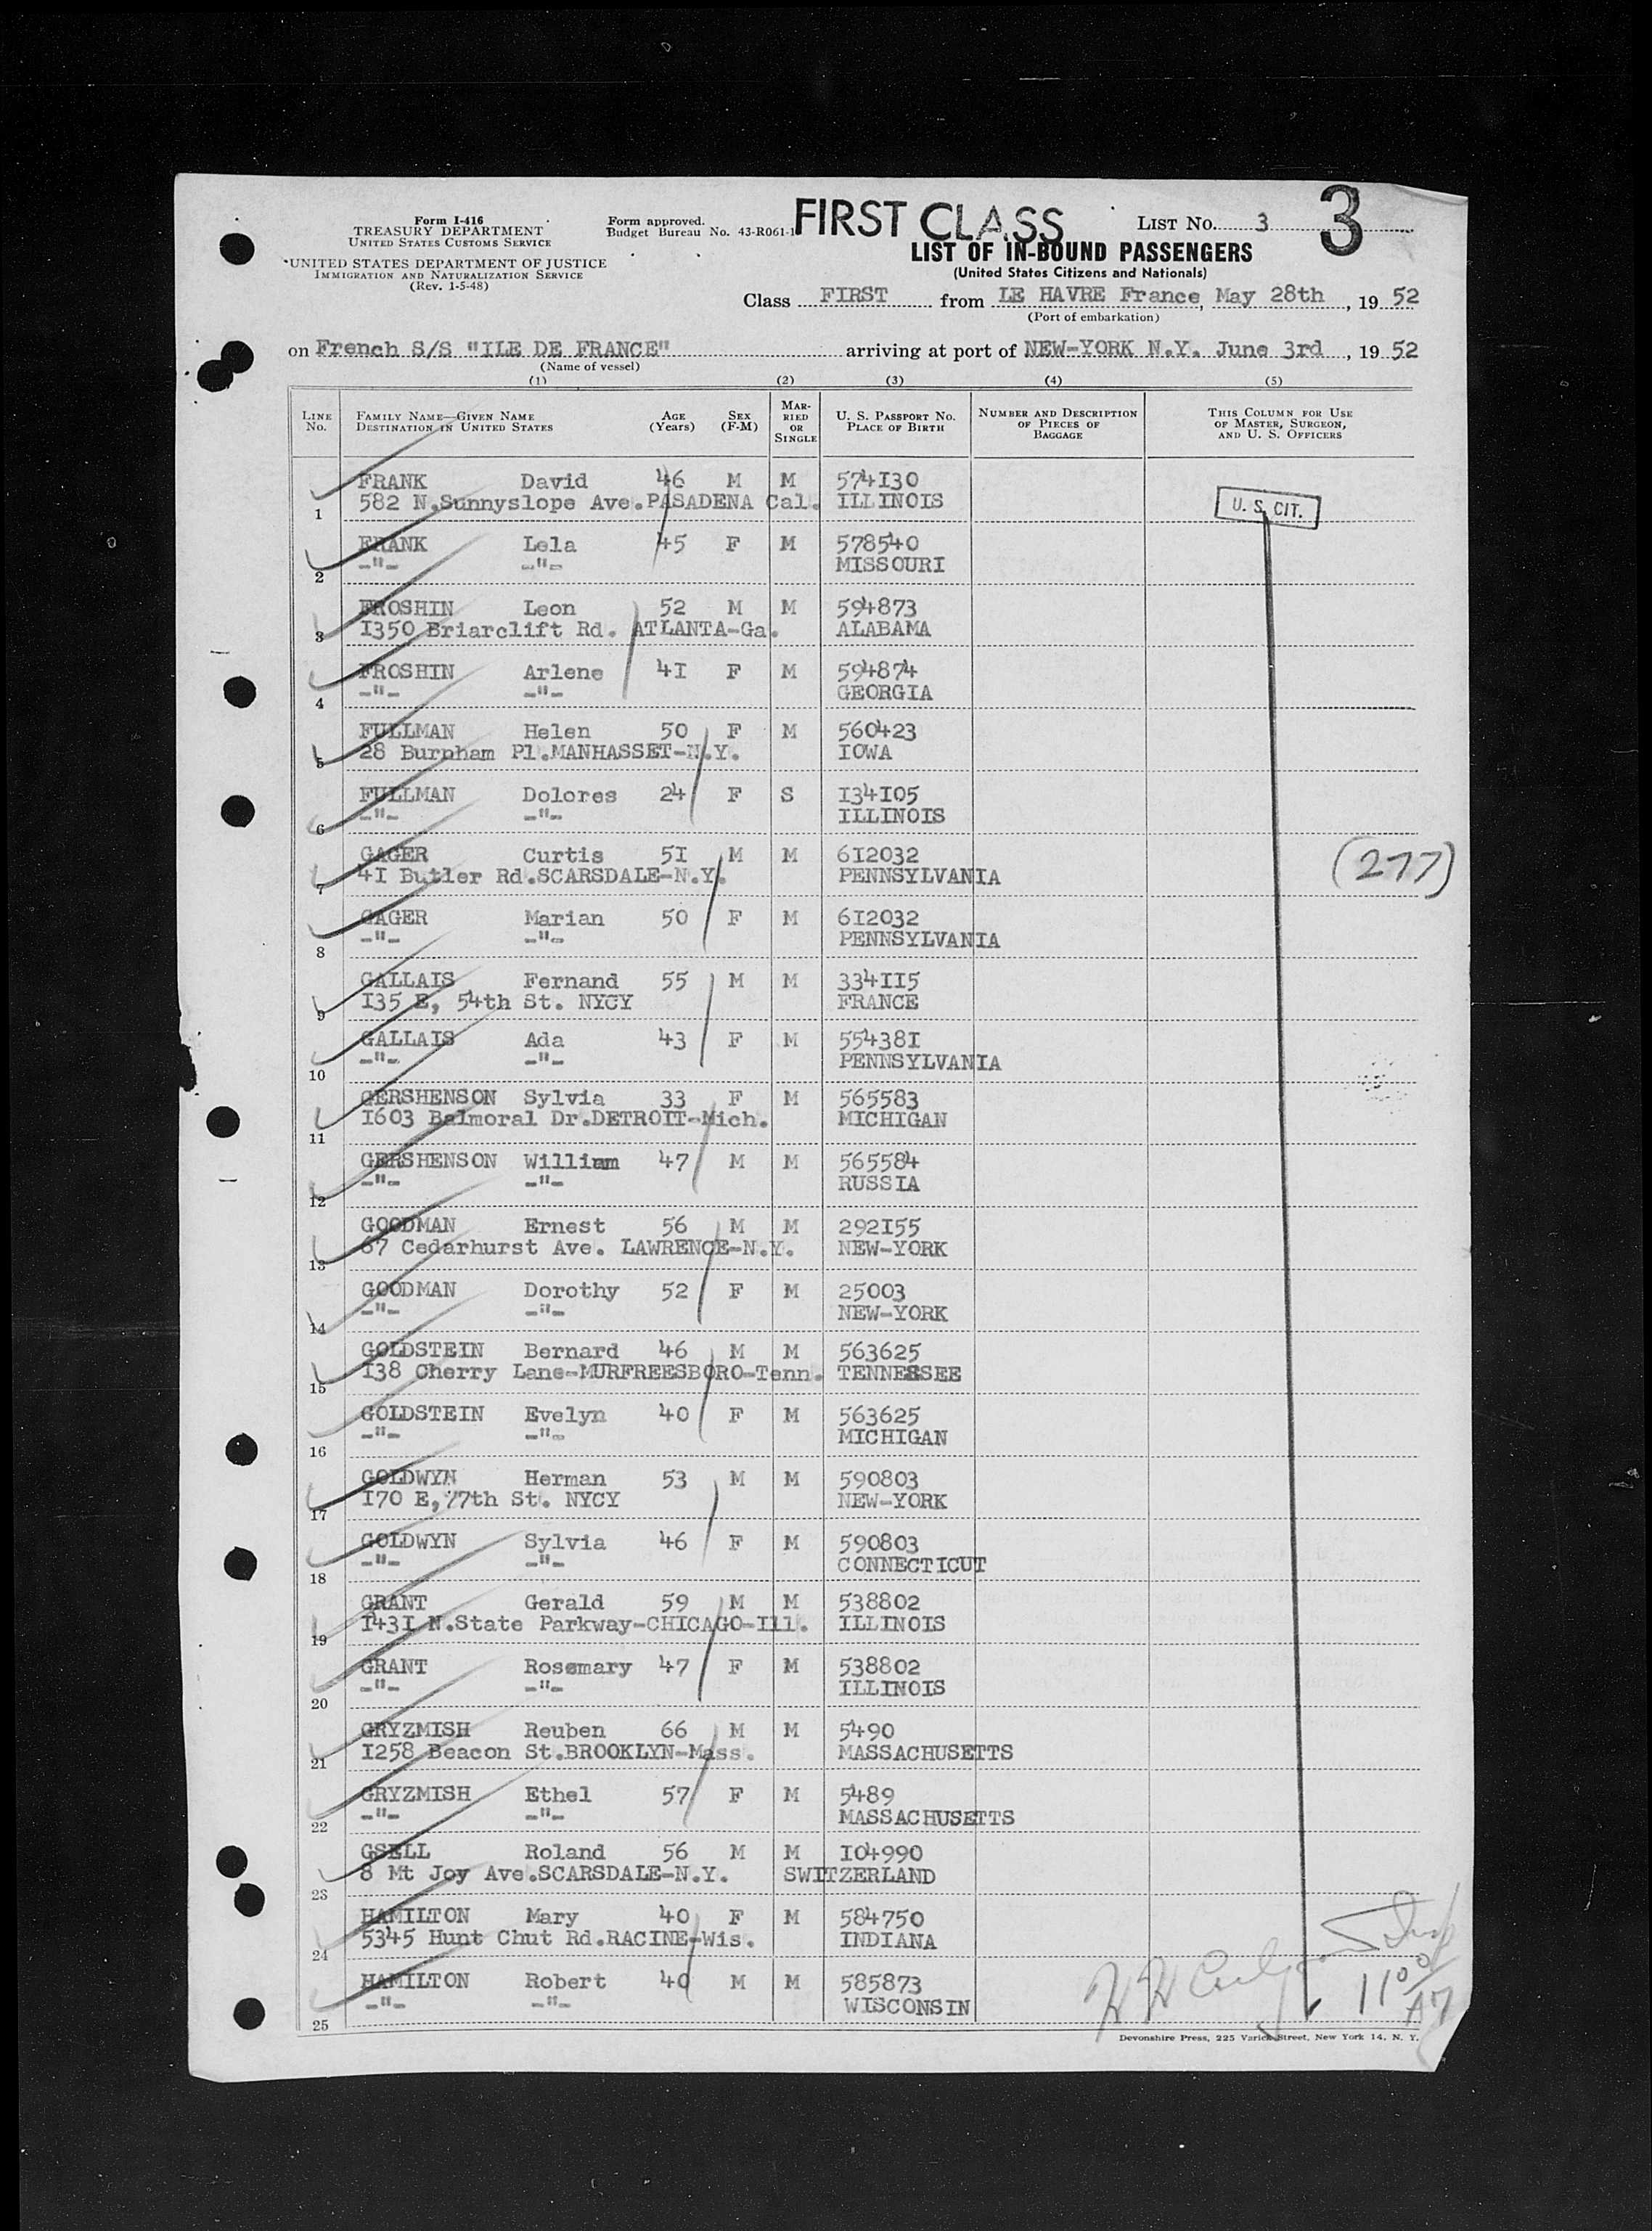 Form I-416
TREASURY DEPARTMENT
UNITED STATES CUSTOMS SERVICE
UNITED STATES DEPARTMENT OF JUSTICE
IMMIGRATION AND NATURALIZATION SERVICE
(Rev. 1-5-48)
Form approved.
Budget Bureau No. 43-R061-1
FIRST CLASS
LIST No. 3
3
LIST OF IN-BOUND PASSENGERS
(United States Citizens and Nationals)
Class FIRST from LE HAVRE France, May 28th, 19 52
(Port of embarkation)
on French S/S "ILE DE FRANCE" arriving at port of NEW-YORK N.Y. June 3rd, 19 52
(Name of vessel)
(1) (2) (3) (4) (5)
LINE No. FAMILY NAME—GIVEN NAME DESTINATION IN UNITED STATES AGE (Years) SEX (F-M) MARRIED OR SINGLE U. S. PASSPORT No. PLACE OF BIRTH NUMBER AND DESCRIPTION OF PIECES OF BAGGAGE THIS COLUMN FOR USE OF MASTER, SURGEON, AND U. S. OFFICERS
FRANK David 46 M M 574130
1 582 N.Sunnyslope Ave.PASADENA Cal. ILLINOIS
U. S. CIT.
FRANK Lela 45 F M 578540
2 -"- -"- MISSOURI
FROSHIN Leon 52 M M 594873
3 1350 Briarclift Rd. ATLANTA-Ga. ALABAMA
FROSHIN Arlene 41 F M 594874
4 -"- -"- GEORGIA
FULLMAN Helen 50 F M 560423
5 28 Burnham Pl.MANHASSET-N.Y. IOWA
FULLMAN Dolores 24 F S 134105
6 -"- -"- ILLINOIS
GAGER Curtis 51 M M 612032
7 41 Butler Rd.SCARSDALE-N.Y. PENNSYLVANIA
(277)
GAGER Marian 50 F M 612032
8 -"- -"- PENNSYLVANIA
GALLAIS Fernand 55 M M 334115
9 135 E, 54th St. NYCY FRANCE
GALLAIS Ada 43 F M 554381
10 -"- -"- PENNSYLVANIA
GERSHENSON Sylvia 33 F M 565583
11 1603 Balmoral Dr.DETROIT-Mich. MICHIGAN
GERSHENSON William 47 M M 565584
12 -"- -"- RUSSIA
GOODMAN Ernest 56 M M 292155
13 67 Cedarhurst Ave. LAWRENCE-N.Y. NEW-YORK
GOODMAN Dorothy 52 F M 25003
14 -"- -"- NEW-YORK
GOLDSTEIN Bernard 46 M M 563625
15 138 Cherry Lane-MURFREESBORO-Tenn. TENNESSEE
GOLDSTEIN Evelyn 40 F M 563625
16 -"- -"- MICHIGAN
GOLDWYN Herman 53 M M 590803
17 170 E,77th St. NYCY NEW-YORK
GOLDWYN Sylvia 46 F M 590803
18 -"- -"- CONNECTICUT
GRANT Gerald 59 M M 538802
19 1431 N.State Parkway-CHICAGO-Ill. ILLINOIS
GRANT Rosemary 47 F M 538802
20 -"- -"- ILLINOIS
GRYZMISH Reuben 66 M M 5490
21 1258 Beacon St.BROOKLYN-Mass. MASSACHUSETTS
GRYZMISH Ethel 57 F M 5489
22 -"- -"- MASSACHUSETTS
GSELL Roland 56 M M 104990
23 8 Mt Joy Ave.SCARSDALE-N.Y. SWITZERLAND
HAMILTON Mary 40 F M 584750
24 5345 Hunt Chut Rd.RACINE-Wis. INDIANA
HAMILTON Robert 40 M M 585873
25 -"- -"- WISCONSIN
Devonshire Press, 225 Varick Street, New York 14, N. Y.